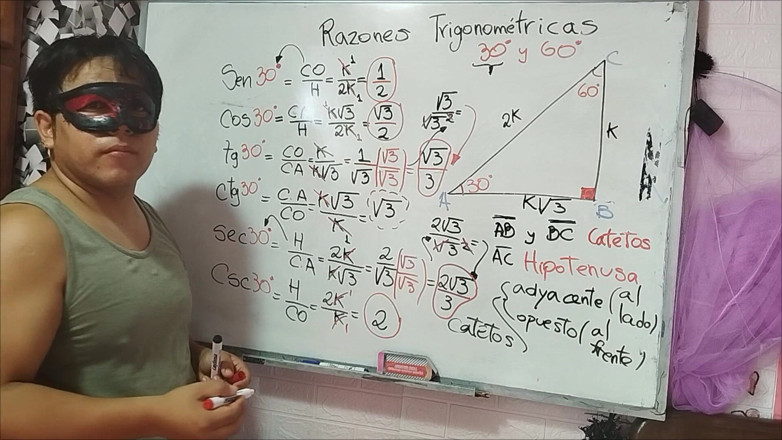 Razones Trigonométricas
30° y 60°
Sen30° = CO/H = K/2K = 1/2
Cos30° = CA/H = K√3/2K = √3/2
tg30° = CO/CA = K/K√3 = 1/√3 (√3/√3) = √3/3
√3/√3² =
Ctg30° = C.A/CO = K√3/K = √3
Sec30° = H/C.A = 2K/K√3 = 2/√3 (√3/√3) = 2√3/3
2√3/√3² =
Csc30° = H/CO = 2K/K = 2
C
60°
2K
K
A
30°
K√3
B
AB y BC Catetos
AC Hipotenusa
Catetos
adyacente (al lado)
opuesto (al frente)